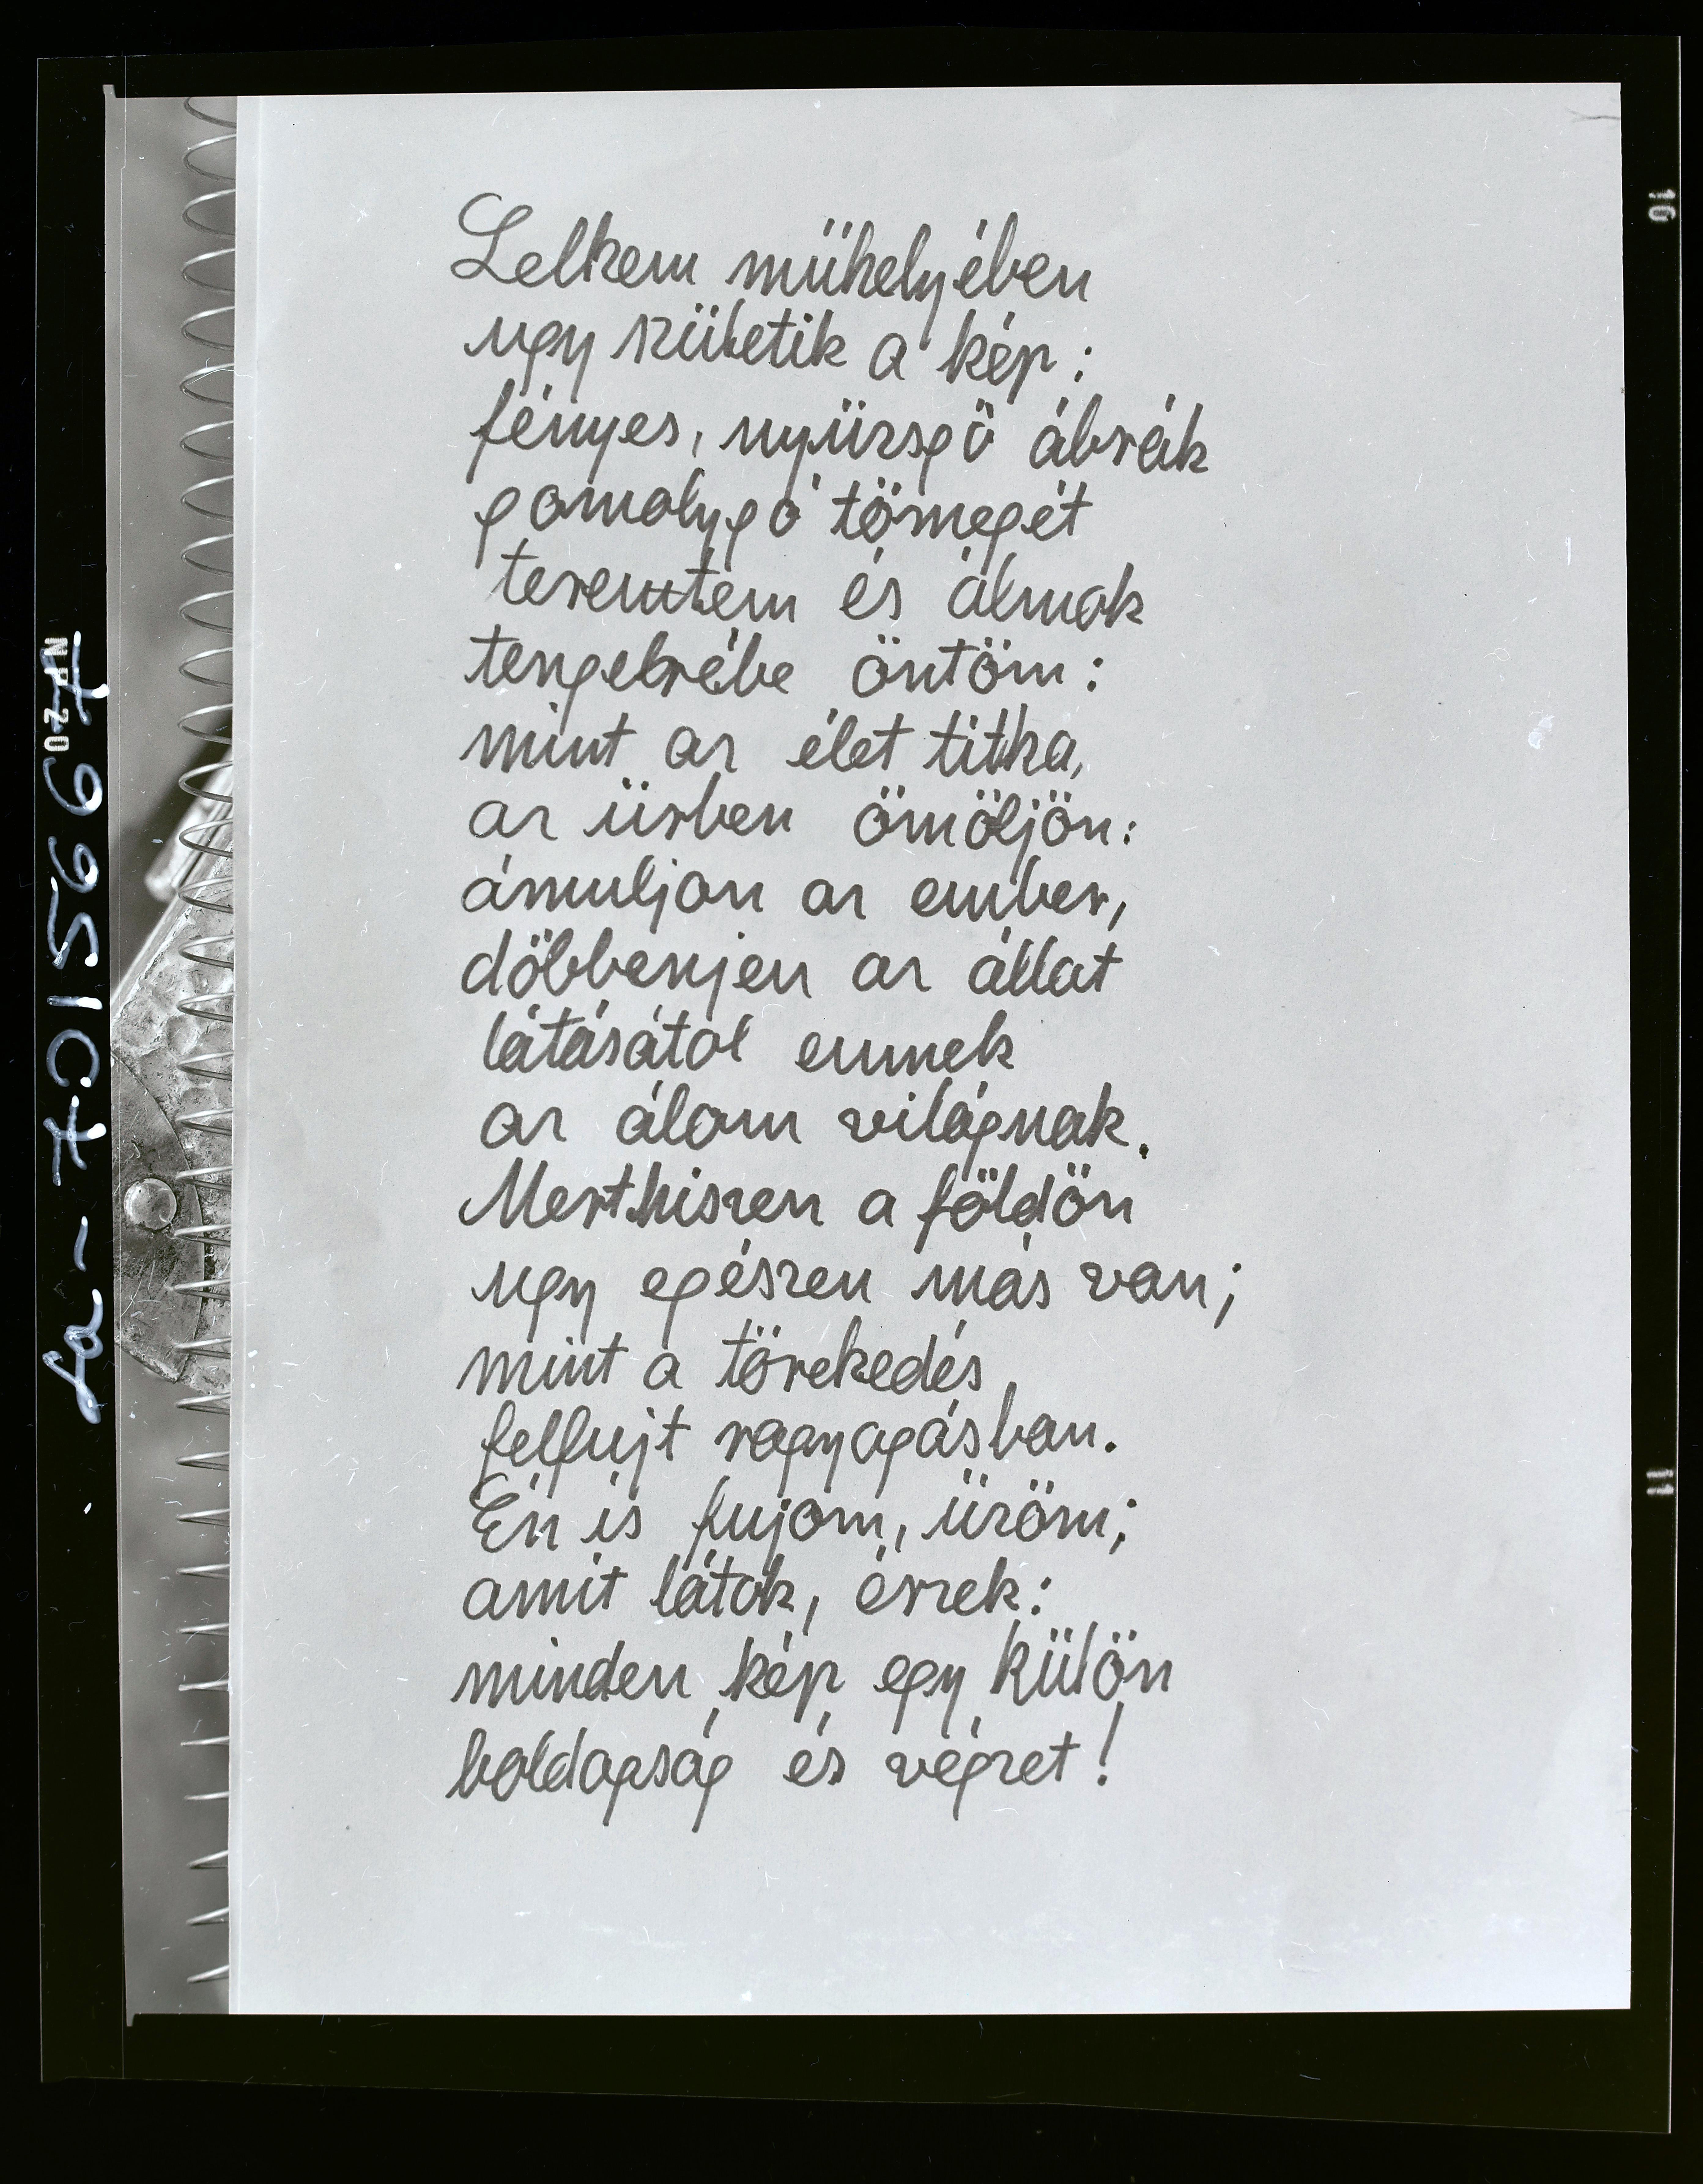 Lelkem mühelyében
ugy születik a kép:
fényes, nyüzsgő ábrák
gomolygó tömegét
teremtem és álmok
tengelyébe öntöm:
mint az élet titka,
az ürben ömöljön:
ámuljon az ember,
döbbenjen az állat
látásától ennek
az álom világnak.
Merthiszen a földön
ugy egészen más van;
mint a törekedés
felfujt ragyogásban.
Én is fujom, üzöm;
amit látok, érzek:
minden kép egy külön
boldogság és végzet!
fa-701526967
NP20
10
11